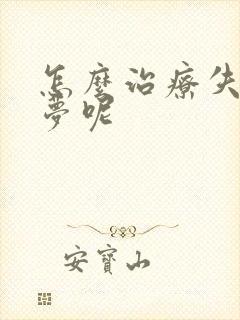 怎麼治療失
夢呢
安寶山